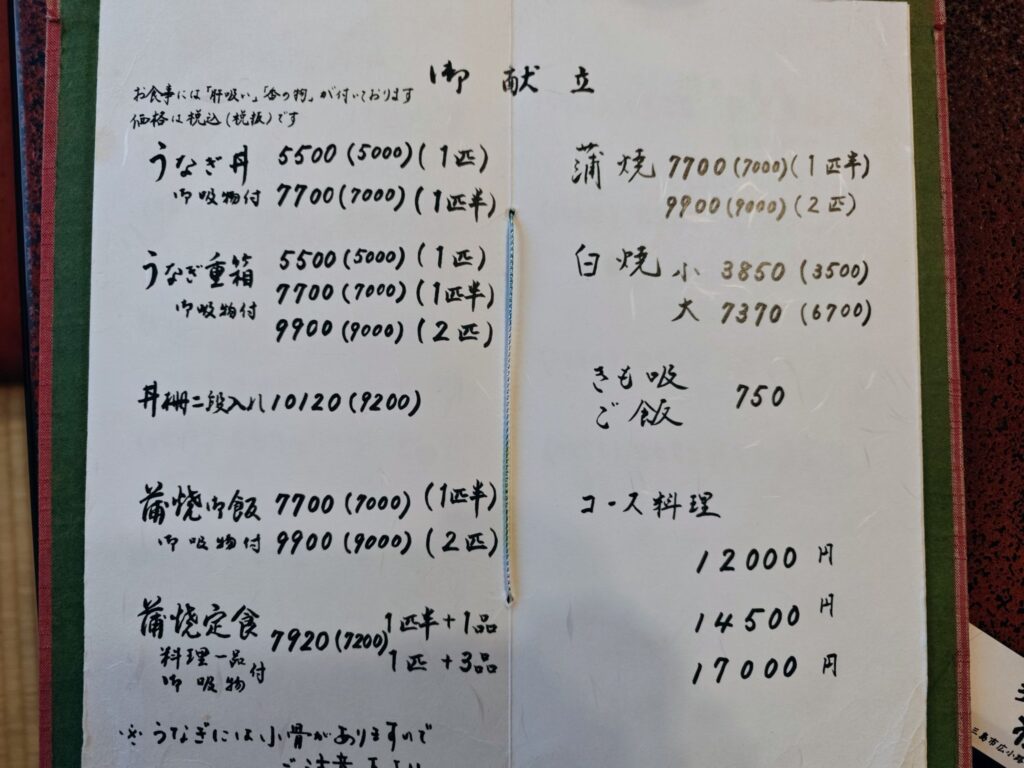 御献立
お食事には「肝吸い」「香の物」が付いております
価格は税込(税抜)です
うなぎ丼 5500(5000)(1匹)
御吸物付 7700(7000)(1匹半)
うなぎ重箱 5500(5000)(1匹)
御吸物付 7700(7000)(1匹半)
9900(9000)(2匹)
丼柵二段入れ 10120(9200)
蒲焼御飯 7700(7000)(1匹半)
御吸物付 9900(9000)(2匹)
蒲焼定食 7920(7200) 1匹半+1品
料理一品 1匹+3品
御吸物付
※うなぎには小骨がありますので
ご注意
蒲焼 7700(7000)(1匹半)
9900(9000)(2匹)
白焼 小 3850(3500)
大 7370(6700)
きも吸
ご飯 750
コース料理
12000円
14500円
17000円
三島市広小路